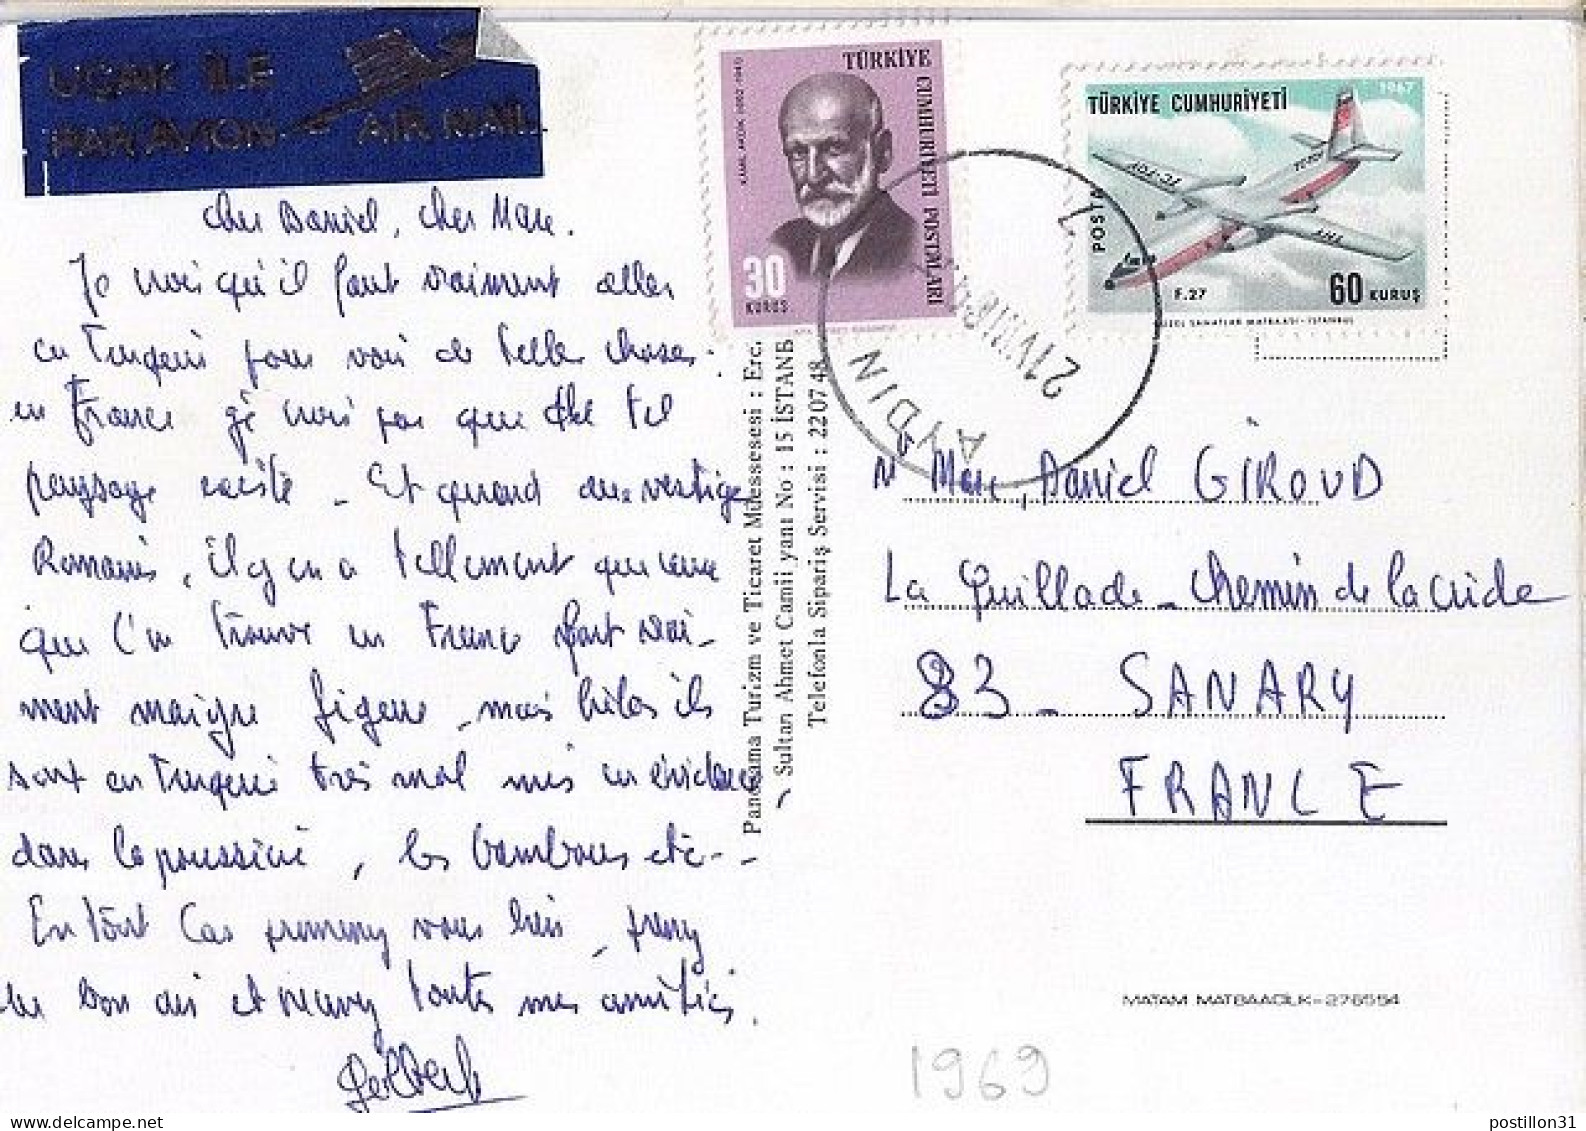 UÇAK İLE
PAR AVION AIR MAIL
TÜRKİYE CUMHURİYETİ POSTALARI
30
KURUŞ
TÜRKİYE CUMHURİYETİ
1967
POSTA
TC-FOY
THY
F.27
60 KURUŞ
GÜZEL SANATLAR MATBAASI-İSTANBUL
AYDIN
21 VIII
cher Daniel, cher Marc.
Je crois qu'il faut vraiment aller
en Turquie pour voir de telles choses.
en France je crois pas que tel
paysage existe _ Et quand aux vestiges
Romains, il y en a tellement que ceux
que l'on trouve en France font vrai_
ment maigre figure _ mais hélas ils
sont en Turquie très mal mis en évidence _
dans la poussière, les bambous etc--
En tout cas promenez vous bien _ prenez
du bon air et recevez toutes mes amitiés.
Gilbert
Panorama Turizm ve Ticaret Müessesesi : Erc.
Sultan Ahmet Camii yanı No : 15 İSTANB
Telefonla Sipariş Servisi : 22 07 48
Mr Marc, Daniel GIROUD
La Guillade _ Chemin de la Cride
83 _ SANARY
FRANCE
MATAM MATBAACILIK-276554
1969
postillon31